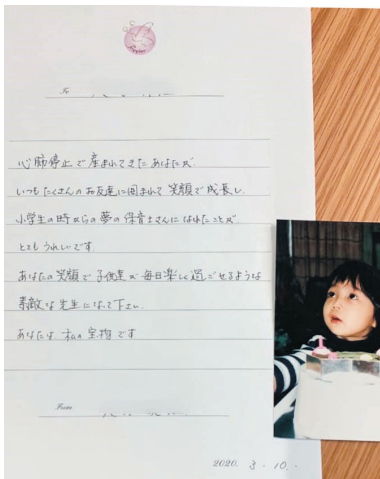 To
心肺停止で産まれてきたあなたが、
いつもたくさんのお友達に囲まれて笑顔で成長し、
小学生の時からの夢の保育士さんになれたことが、
とてもうれしいです
あなたの笑顔で子供達が毎日楽しく過ごせるような
素敵な先生になって下さい
あなたは私の宝物です
From
2020. 3. 10.